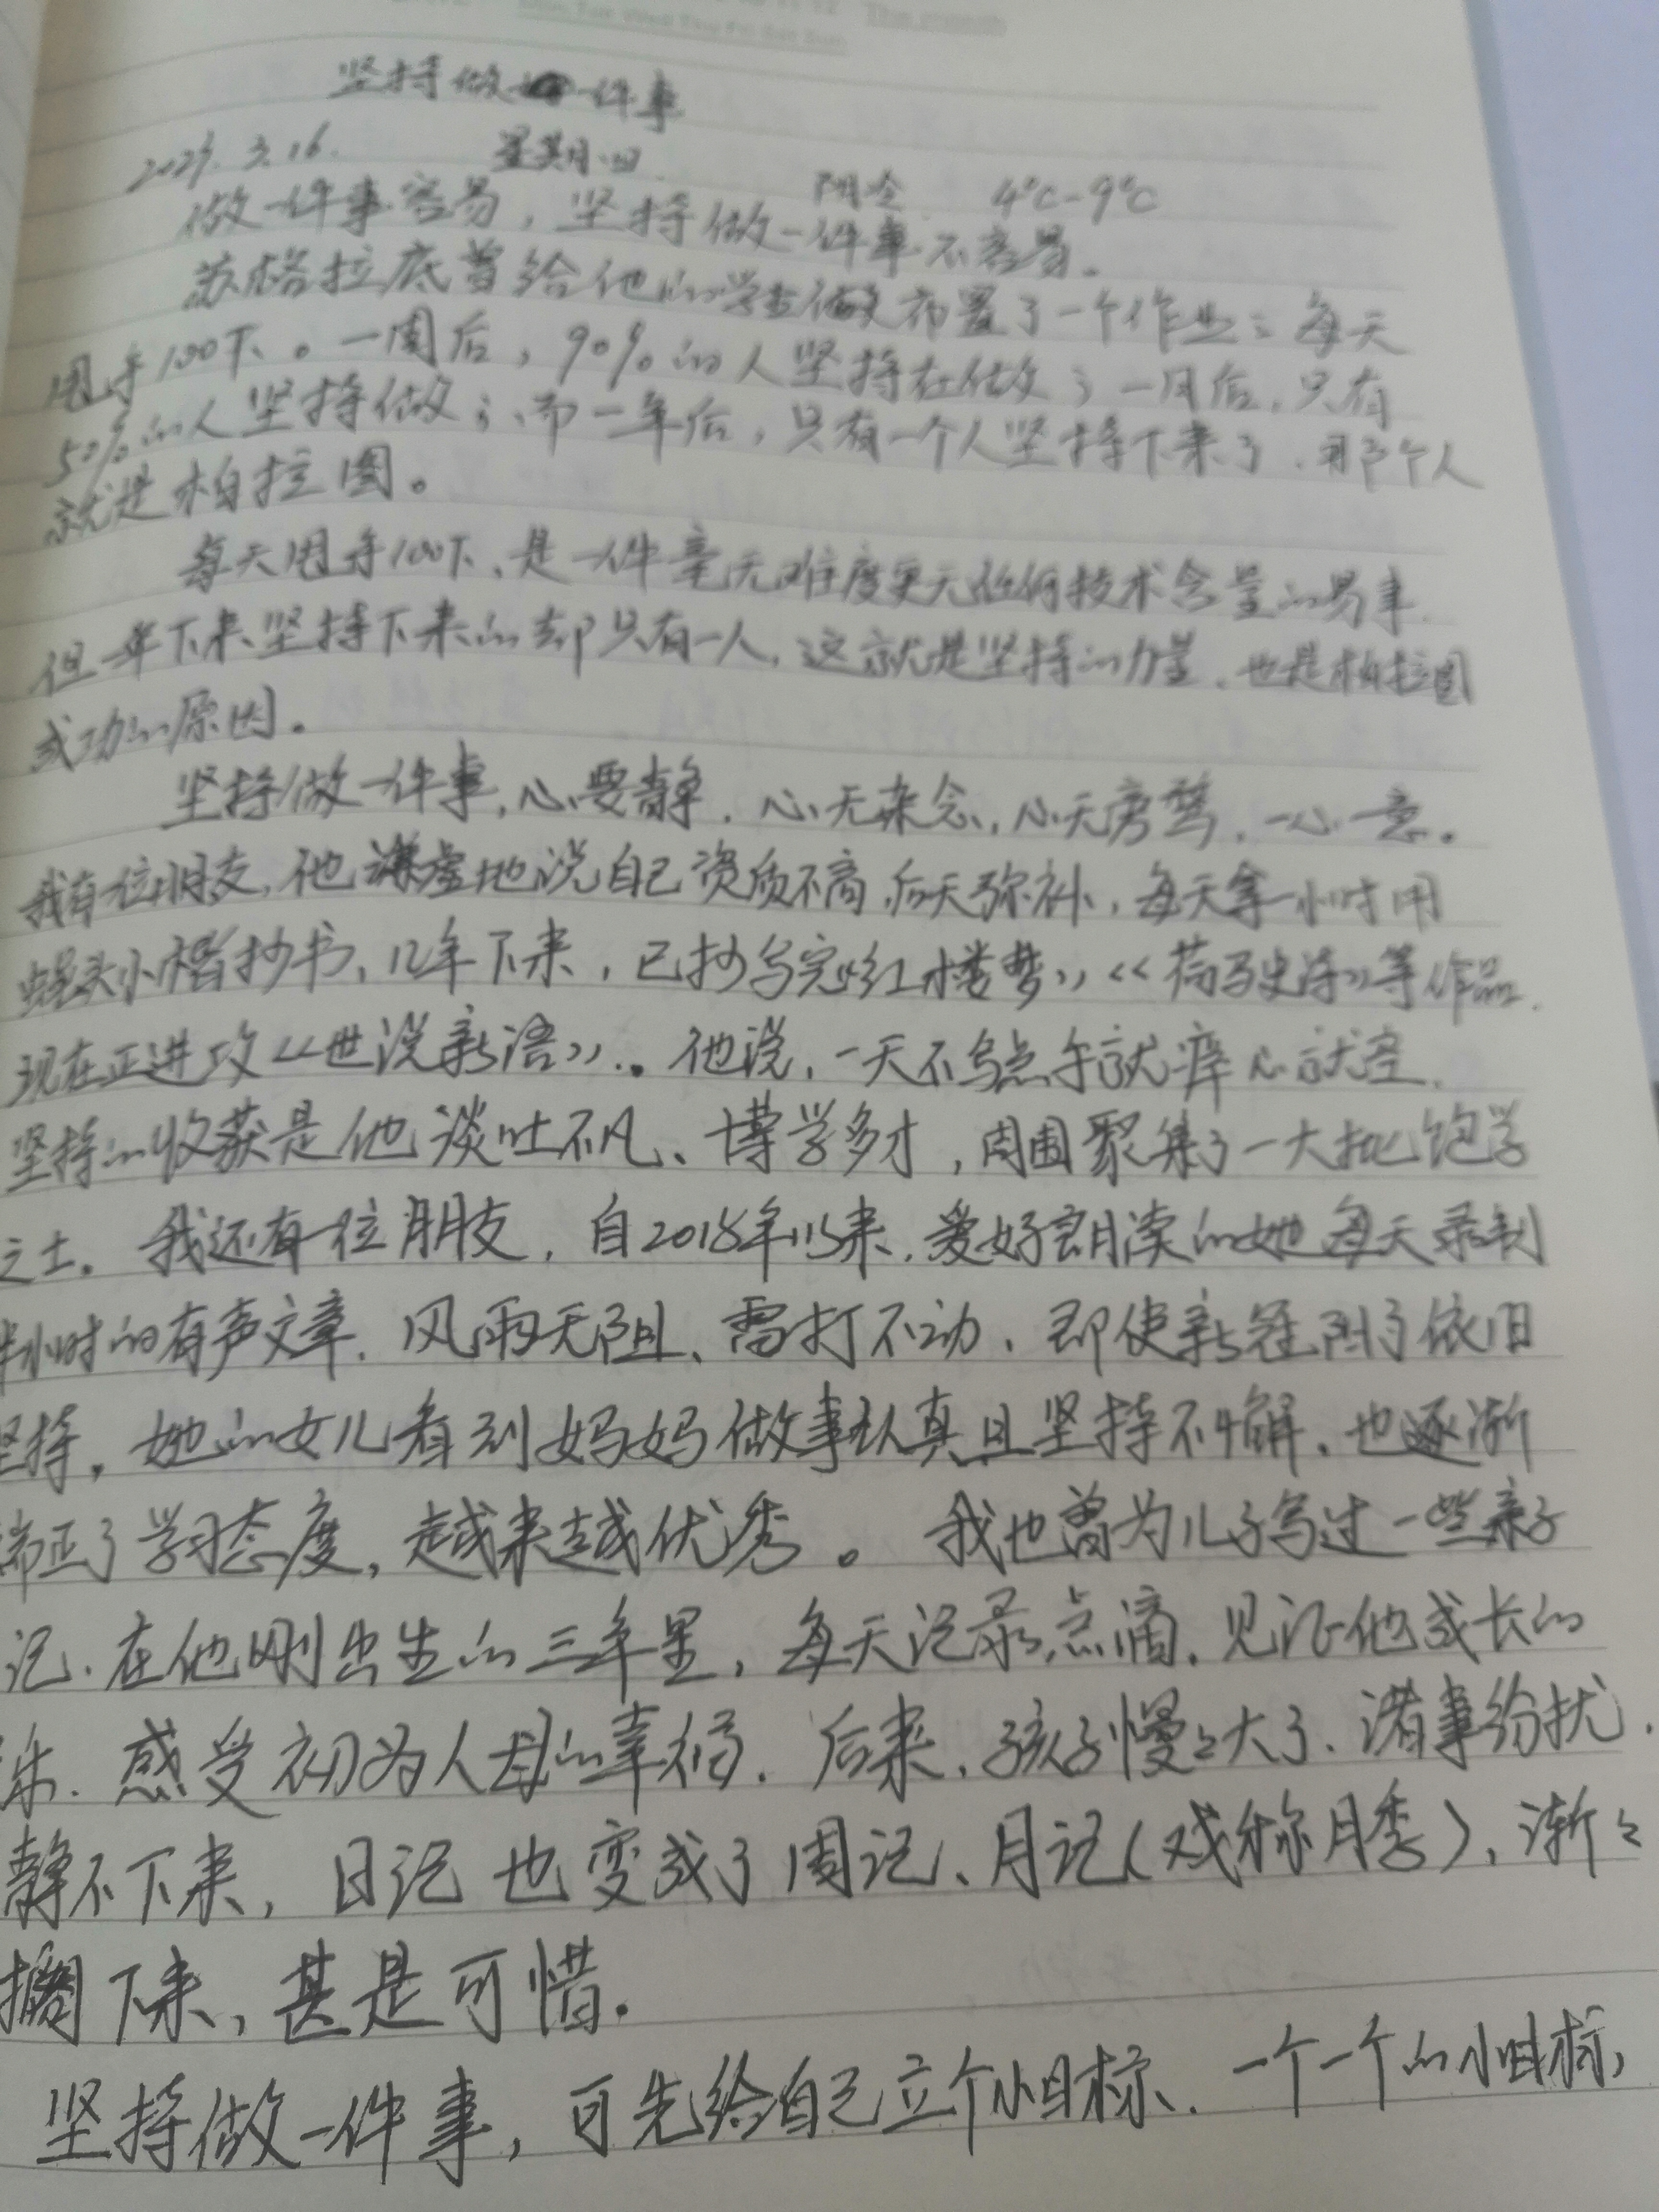 坚持做一件事
3.16. 星期四 阴冷 4℃-9℃
做一件事容易，坚持做一件事不容易。
苏格拉底曾给他的学生布置了一个作业：每天
甩手100下。一周后，90%的人坚持在做；一月后，只有
50%的人坚持做；而一年后，只有一个人坚持下来了，那个人
就是柏拉图。
每天甩手100下，是一件毫无难度更无任何技术含量的易事，
但一年下来坚持下来的却只有一人，这就是坚持的力量，也是柏拉图
成功的原因。
坚持做一件事，心要静，心无杂念，心无旁骛，一心一意。
我有一位朋友，他谦虚地说自己资质不高，后天弥补，每天拿一小时用
蝇头小楷抄书，几年下来，已抄写完《红楼梦》《荷马史诗》等作品，
现在正进攻《世说新语》。他说，一天不写点手就痒心就空，
坚持的收获是他谈吐不凡、博学多才，周围聚集了一大批饱学
之士。我还有一位朋友，自2018年以来，爱好朗读的她每天录制
半小时的有声文章，风雨无阻、雷打不动，即使新冠阳了依旧
坚持，她的女儿看到妈妈做事认真且坚持不懈，也逐渐
端正了学习态度，越来越优秀。我也曾为儿子写过一些亲子
记，在他刚出生的三年里，每天记录点滴，见证他成长的
乐，感受初为人母的幸福，后来，孩子慢慢大了，诸事纷扰，
静不下来，日记也变成了周记、月记（戏称月季），渐渐
搁下来，甚是可惜。
坚持做一件事，可先给自己立个小目标，一个一个的小目标，